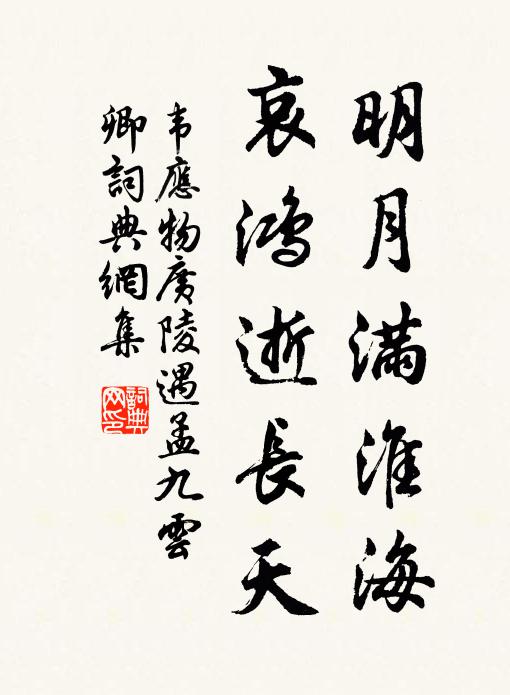 明月满淮海
哀鸿逝長天
韦應物廣陵遇孟九雲
卿詞典網集
詞典网印